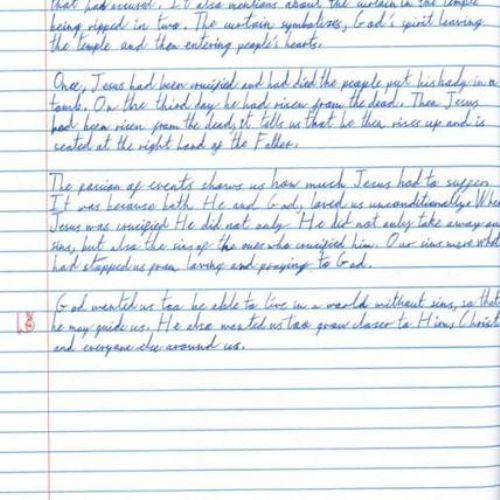 that had occured. It also mentions about the curtain in the temple
being ripped in two. The curtain symbolizes, God's spirit leaving
the temple and then entering people's hearts.
Once, Jesus had been crucified and had died the people put his body in a
tomb. On the third day he had risen from the dead. Then Jesus
had been risen from the dead, it tells us that he then rises up and is
seated at the right hand of the Father.
The passion of events shows us how much Jesus had to suffer.
It was because both He and God, loved us unconditionally. When
Jesus was crucified He did not only He did not only take away our
sins, but also the sins of the ones who crucified him. Our sins were what
had stopped us from loving and praying to God.
God wanted us too be able to live in a world without sins, so that
he may guide us. He also wanted us too grow closer to Him, Christ
and everyone else around us.